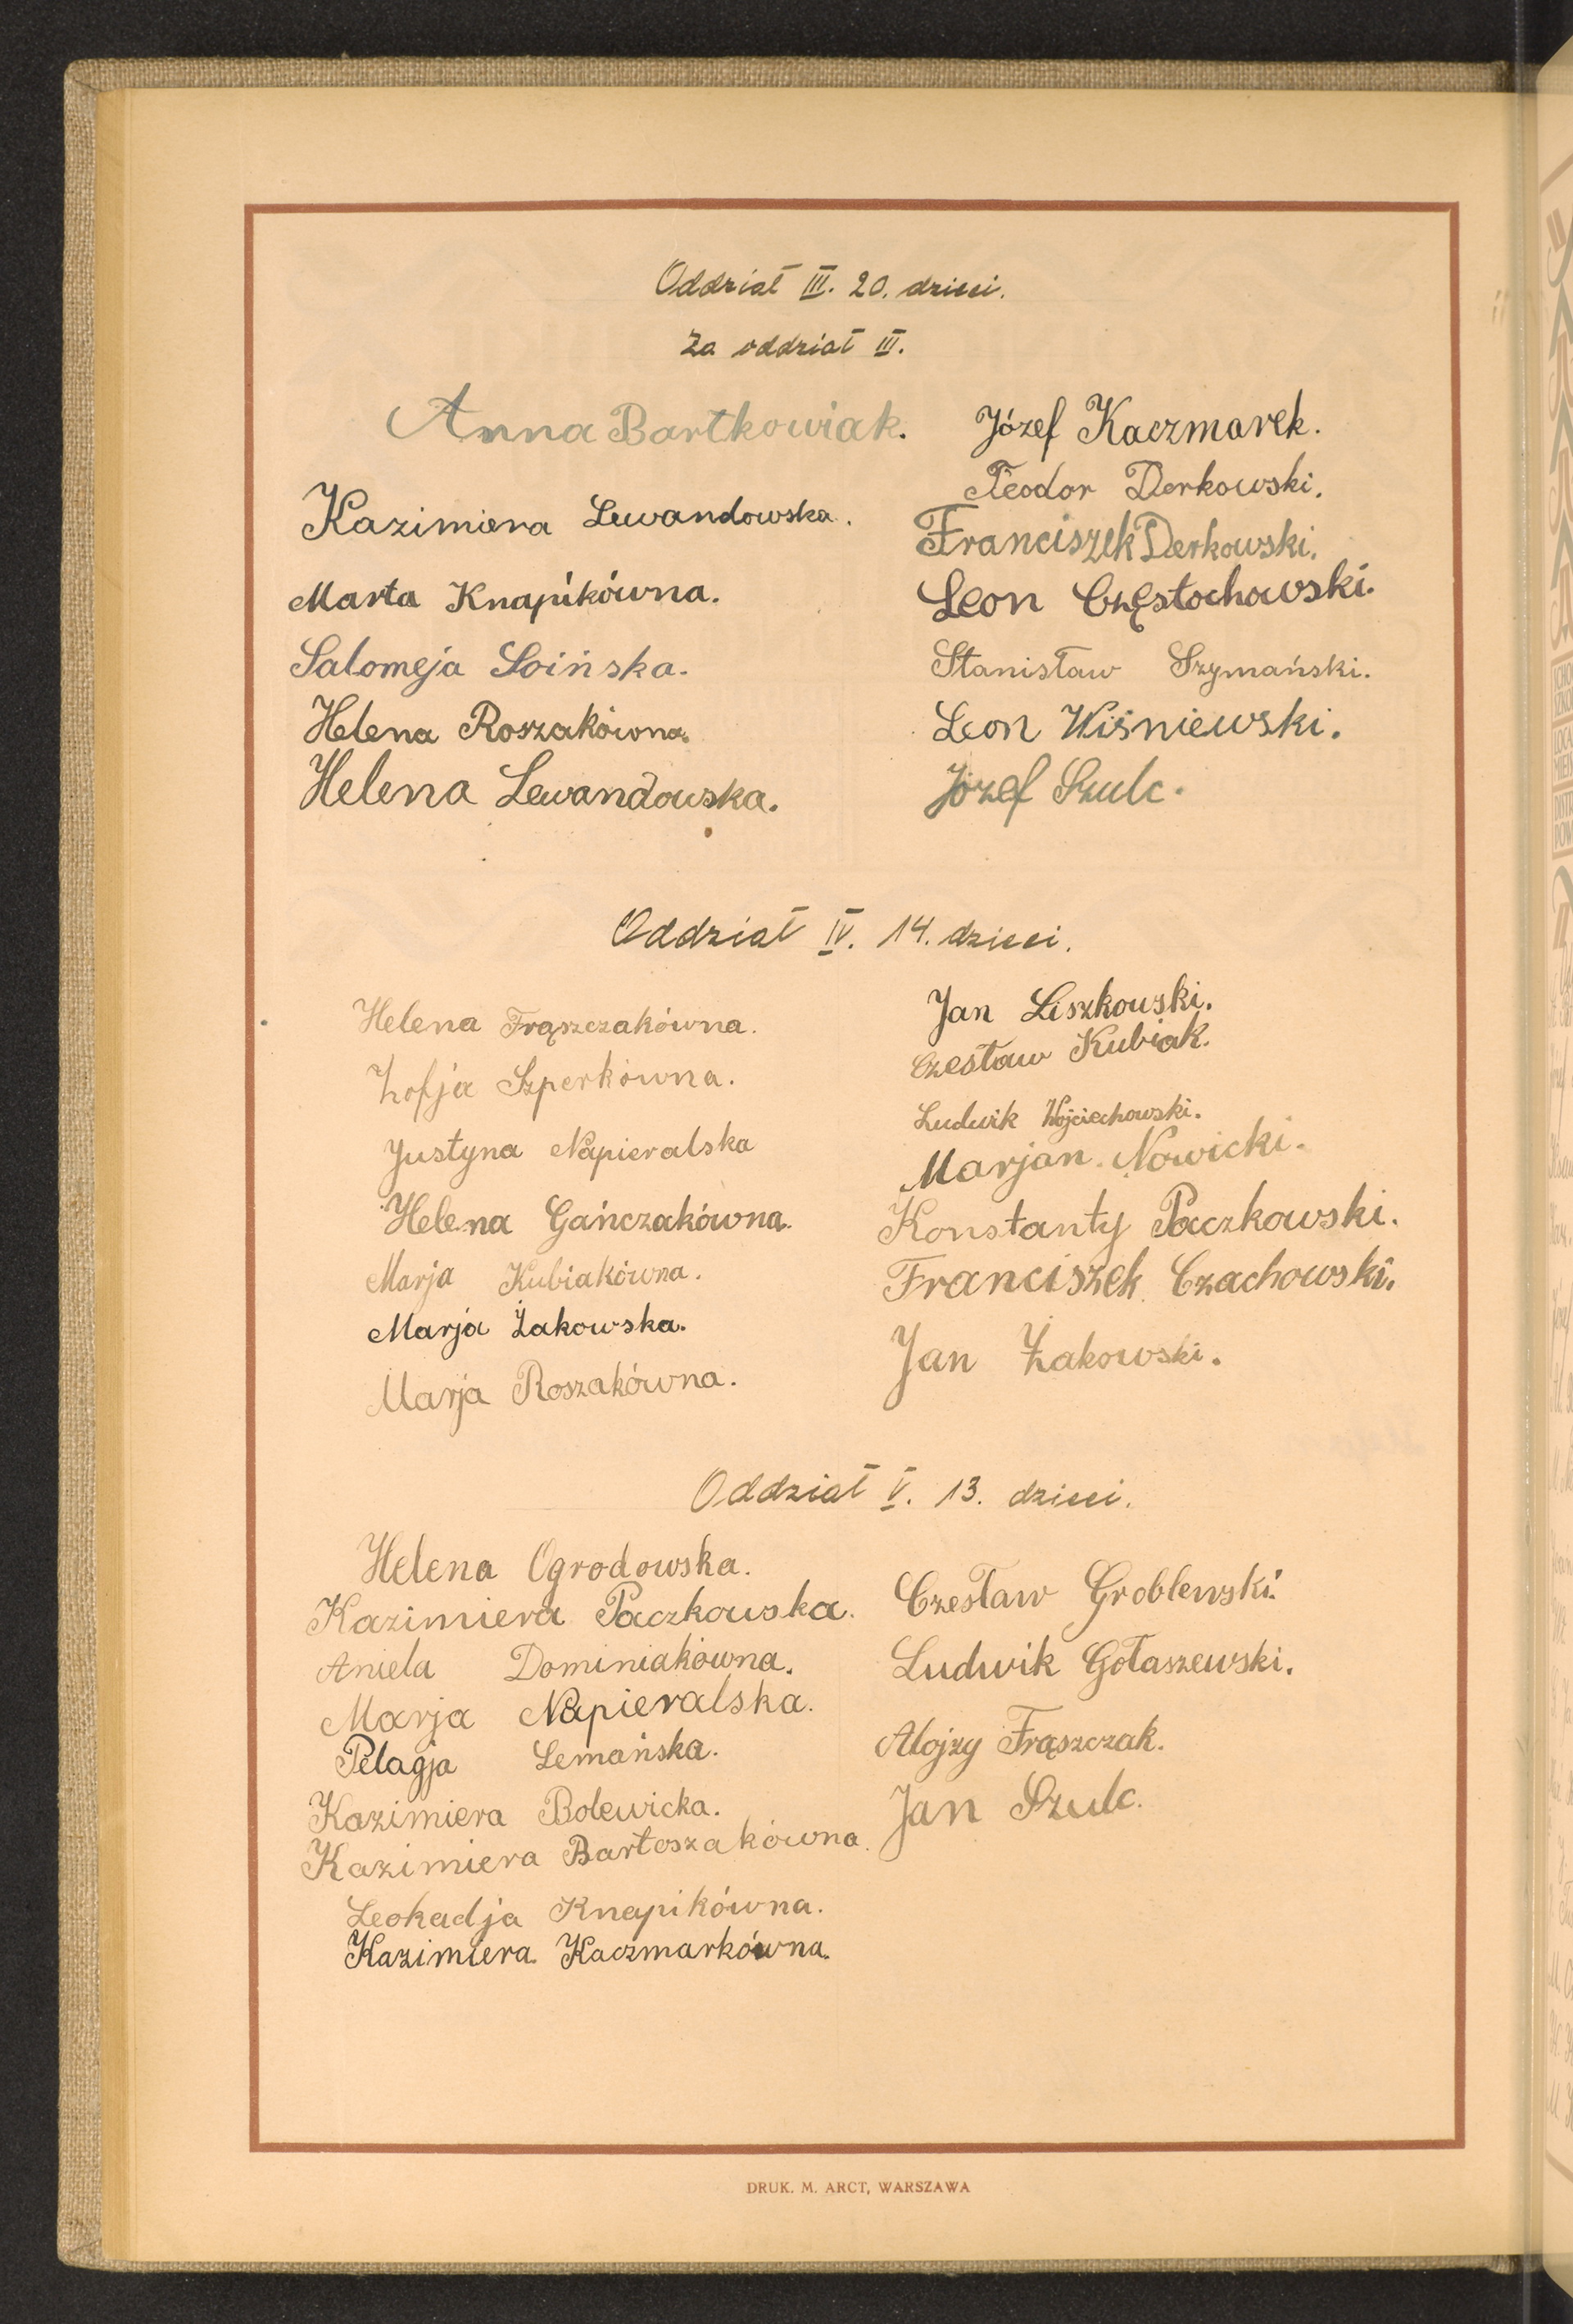 Oddział III. 20. dzieci.
Za oddział III.
Anna Bartkowiak.
Kazimiera Lewandowska.
Marta Knapikówna.
Salomeja Soińska.
Helena Roszakówna.
Helena Lewandowska.
Józef Kaczmarek.
Teodor Derkowski.
Franciszek Derkowski.
Leon Częstochowski.
Stanisław Szymański.
Leon Wiśniewski.
Józef Szulc.
Oddział IV. 14. dzieci.
Helena Frąszczakówna.
Zofja Szperkówna.
Justyna Napieralska
Helena Gańczakówna.
Marja Kubiakówna.
Marja Żakowska.
Marja Roszakówna.
Jan Liszkowski.
Czesław Kubiak.
Ludwik Wojciechowski.
Marjan Nowicki.
Konstanty Paczkowski.
Franciszek Czachowski.
Jan Żakowski.
Oddział V. 13. dzieci.
Helena Ogrodowska.
Kazimiera Paczkowska.
Aniela Dominiakówna.
Marja Napieralska.
Pelagja Lemańska.
Kazimiera Bolewicka.
Kazimiera Bartoszakówna.
Leokadja Knapikówna.
Kazimiera Kaczmarkówna.
Czesław Groblewski.
Ludwik Gołaszewski.
Alojzy Frąszczak.
Jan Szulc.
DRUK. M. ARCT, WARSZAWA